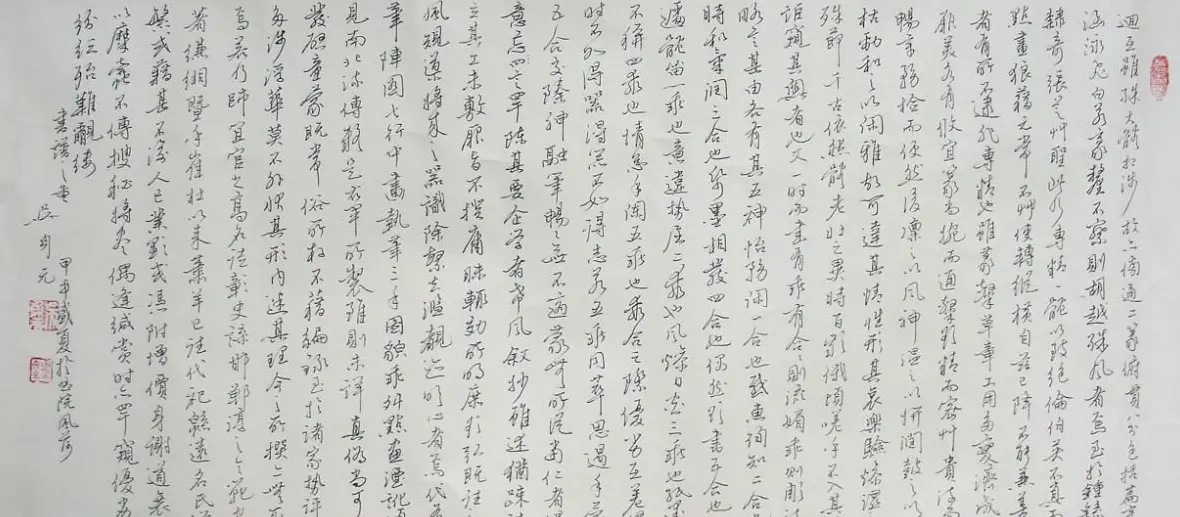 迴互雖殊大體相涉故亦傍通二篆俯貫八分包括篇章
涵泳飛白若毫釐不察則胡越殊風者焉至於鍾繇
隸奇張芝草聖此乃專精一體以致絕倫伯英不真而
點畫狼藉元常不草使轉縱橫自茲已降不能兼善
者有所不逮非專精也雖篆隸草章工用多變濟成
厥美各有攸宜篆尚婉而通隸欲精而密草貴流而
暢章務檢而便然後凜之以風神溫之以妍潤鼓之以
枯勁和之以閑雅故可達其情性形其哀樂驗燥濕之
殊節千古依然體老壯之異時百齡俄頃嗟乎不入其門
詎窺其奧者也又一時而書有乖有合合則流媚乖則彫疏
略言其由各有其五神怡務閑一合也感惠徇知二合也
時和氣潤三合也紙墨相發四合也偶然欲書五合也心
遽體留一乖也意違勢屈二乖也風燥日炎三乖也紙墨
不稱四乖也情怠手闌五乖也乖合之際優劣互差得
時不如得器得器不如得志若五乖同萃思遏手蒙
五合交臻神融筆暢暢無不適蒙無所從當仁者得
意忘言罕陳其要企學者希風敘妙雖述猶疏徒
立其工未敷厥旨不揆庸昧輒效所明庶欲弘既往之
風規導將來之器識除繁去濫睹跡明心者焉代有
筆陣圖七行中畫執筆三手圖貌乖舛點畫湮訛頃
見南北流傳疑是右軍所製雖則未詳真偽尚可
發啟童蒙既常俗所存不藉編錄至於諸家勢評
多涉浮華莫不外狀其形內迷其理今之所撰亦無取
焉若乃師宜官之高名徒彰史諜邯鄲淳之令範空
著縑緗暨乎崔杜以來蕭羊已往代祀綿遠名氏滋
繁或藉甚不渝人亡業顯或憑附增價身謝道衰加
以糜蠹不傳搜秘將盡偶逢緘賞時亦罕窺優劣
紛紜殆難覼縷
書譜之一
甲申盛夏於書院風荷